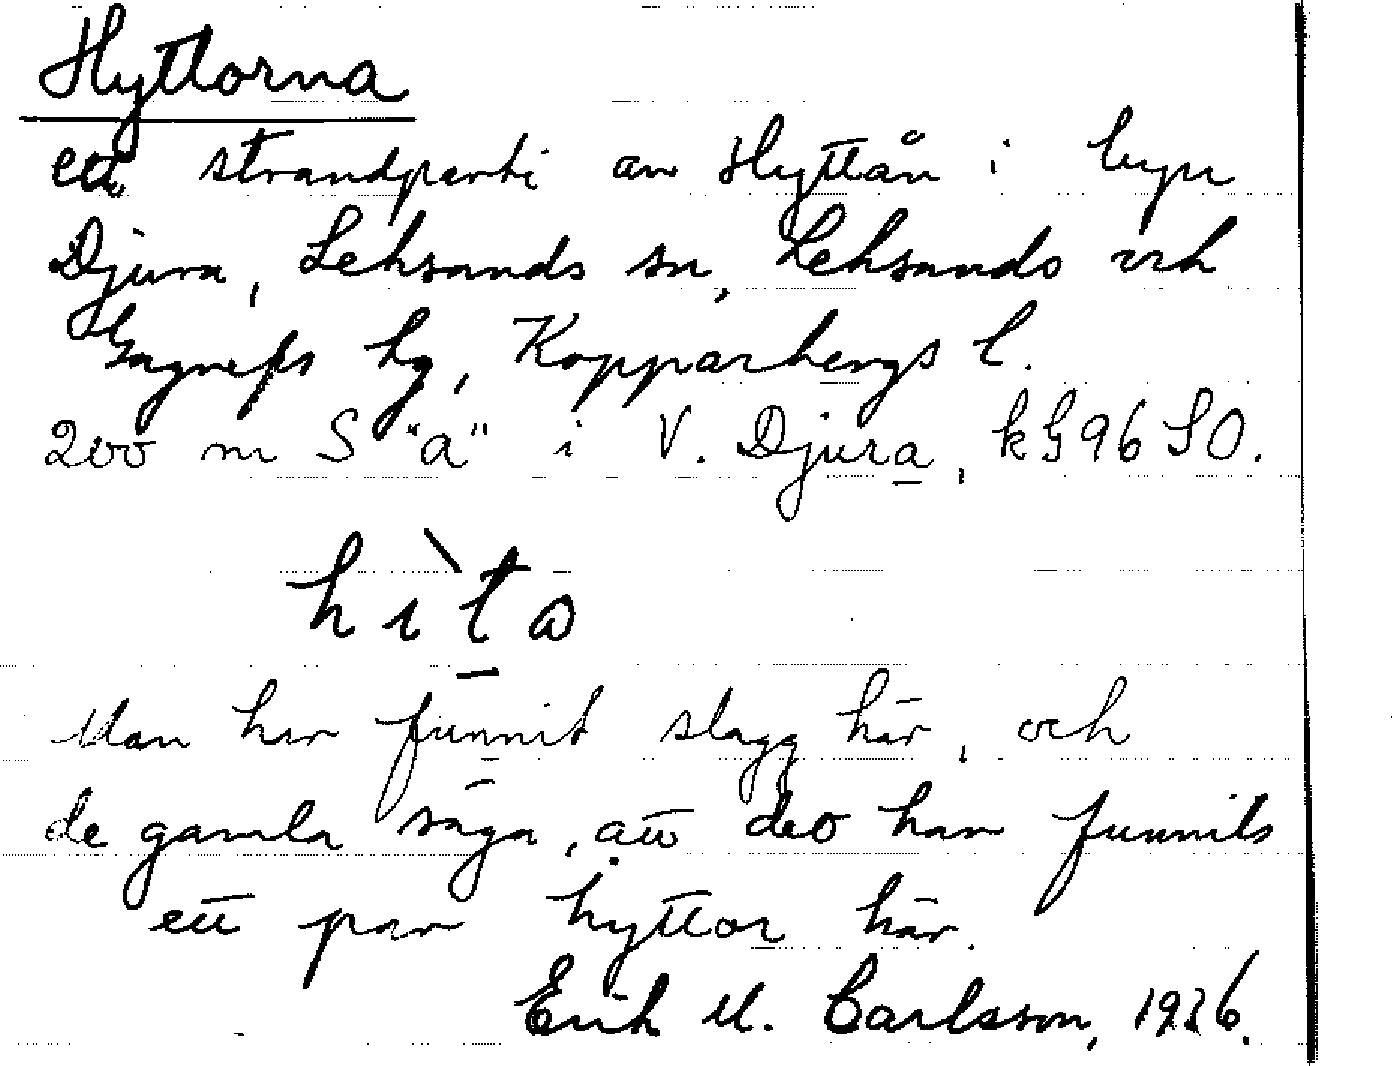 Hyttorna
ett strandparti av Hyttån i byn
Djura, Leksands sn, Leksands och
Gagnefs tg, Kopparbergs l.
200 m S "a" i V. Djura, kG96SO.
hìta
Man har funnit slagg här, och
de gamla säga, att det har funnits
ett par hyttor här.
Erik M. Carlsson, 1936.